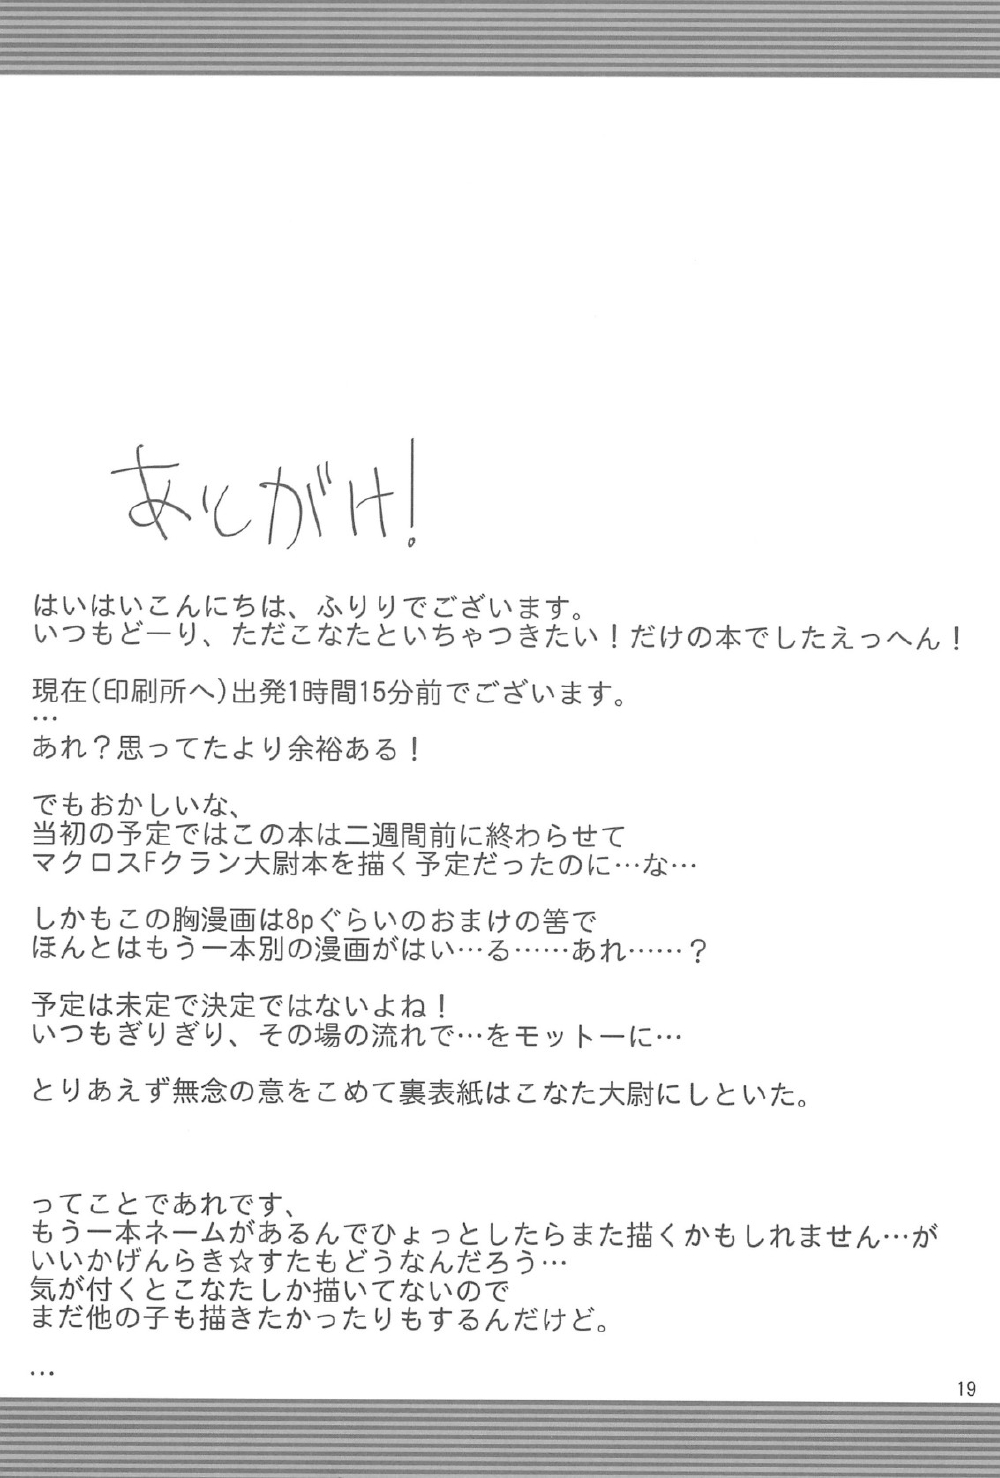 あとがけ！
はいはいこんにちは、ふりりでございます。
いつもどーり、ただこなたといちゃつきたい！だけの本でしたえっへん！
現在(印刷所へ)出発1時間15分前でございます。
…
あれ？思ってたより余裕ある！
でもおかしいな、
当初の予定ではこの本は二週間前に終わらせて
マクロスFクラン大尉本を描く予定だったのに…な…
しかもこの胸漫画は8pぐらいのおまけの筈で
ほんとはもう一本別の漫画がはい…る……あれ……？
予定は未定で決定ではないよね！
いつもぎりぎり、その場の流れで…をモットーに…
とりあえず無念の意をこめて裏表紙はこなた大尉にしといた。
ってことであれです、
もう一本ネームがあるんでひょっとしたらまた描くかもしれません…が
いいかげんらき☆すたもどうなんだろう…
気が付くとこなたしか描いてないので
まだ他の子も描きたかったりもするんだけど。
…
19